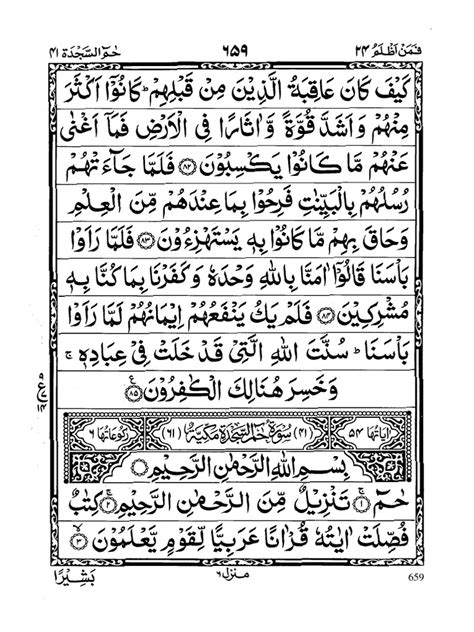 فمن اظلم ٢٤
٦٥٩
حٰم السجدة ٤١
كَيْفَ كَانَ عَاقِبَةُ الَّذِيْنَ مِنْ قَبْلِهِمْ ؕ كَانُوْۤا اَكْثَرَ
مِنْهُمْ وَ اَشَدَّ قُوَّةً وَّ اٰثَارًا فِى الْاَرْضِ فَمَاۤ اَغْنٰى
عَنْهُمْ مَّا كَانُوْا يَكْسِبُوْنَ ۝٨٢ فَلَمَّا جَآءَتْهُمْ
رُسُلُهُمْ بِالْبَيِّنٰتِ فَرِحُوْا بِمَا عِنْدَهُمْ مِّنَ الْعِلْمِ
وَحَاقَ بِهِمْ مَّا كَانُوْا بِهٖ يَسْتَهْزِءُوْنَ ۝٨٣ فَلَمَّا رَاَوْا
بَاْسَنَا قَالُوْۤا اٰمَنَّا بِاللّٰهِ وَحْدَهٗ وَكَفَرْنَا بِمَا كُنَّا بِهٖ
مُشْرِكِيْنَ ۝٨٤ فَلَمْ يَكُ يَنْفَعُهُمْ اِيْمَانُهُمْ لَمَّا رَاَوْا
بَاْسَنَا ؕ سُنَّتَ اللّٰهِ الَّتِىْ قَدْ خَلَتْ فِىْ عِبَادِهٖ ۚ
وَخَسِرَ هُنَالِكَ الْكٰفِرُوْنَ ۝٨٥
اٰياتها ٥٤ (٤١) سُوْرَةُ حٰمٓ السَّجْدَةِ مَكِّيَّةٌ (٦١) ركوعاتها ٦
بِسْمِ اللّٰهِ الرَّحْمٰنِ الرَّحِيْمِ
حٰمٓ ۝١ تَنْزِيْلٌ مِّنَ الرَّحْمٰنِ الرَّحِيْمِ ۝٢ كِتٰبٌ
فُصِّلَتْ اٰيٰتُهٗ قُرْاٰنًا عَرَبِيًّا لِّقَوْمٍ يَّعْلَمُوْنَ ۝٣
بَشِيْرًا
منزل ٦
659